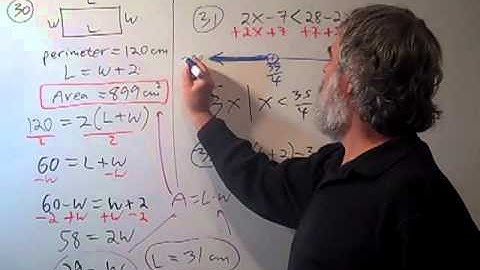 30
L
W
W
L
perimeter = 120 cm
L = W + 2
Area = 899 cm²
120 = 2(L+W)
2 2
60 = L + W
-W -W
60 - W = W + 2
-2 +W +W -2
58 = 2W
A = L·W
L = 31 cm
31
2x - 7 < 28 - 2
+2x +7 +7
35
4
x | x < 35/4
+ 2) - 3